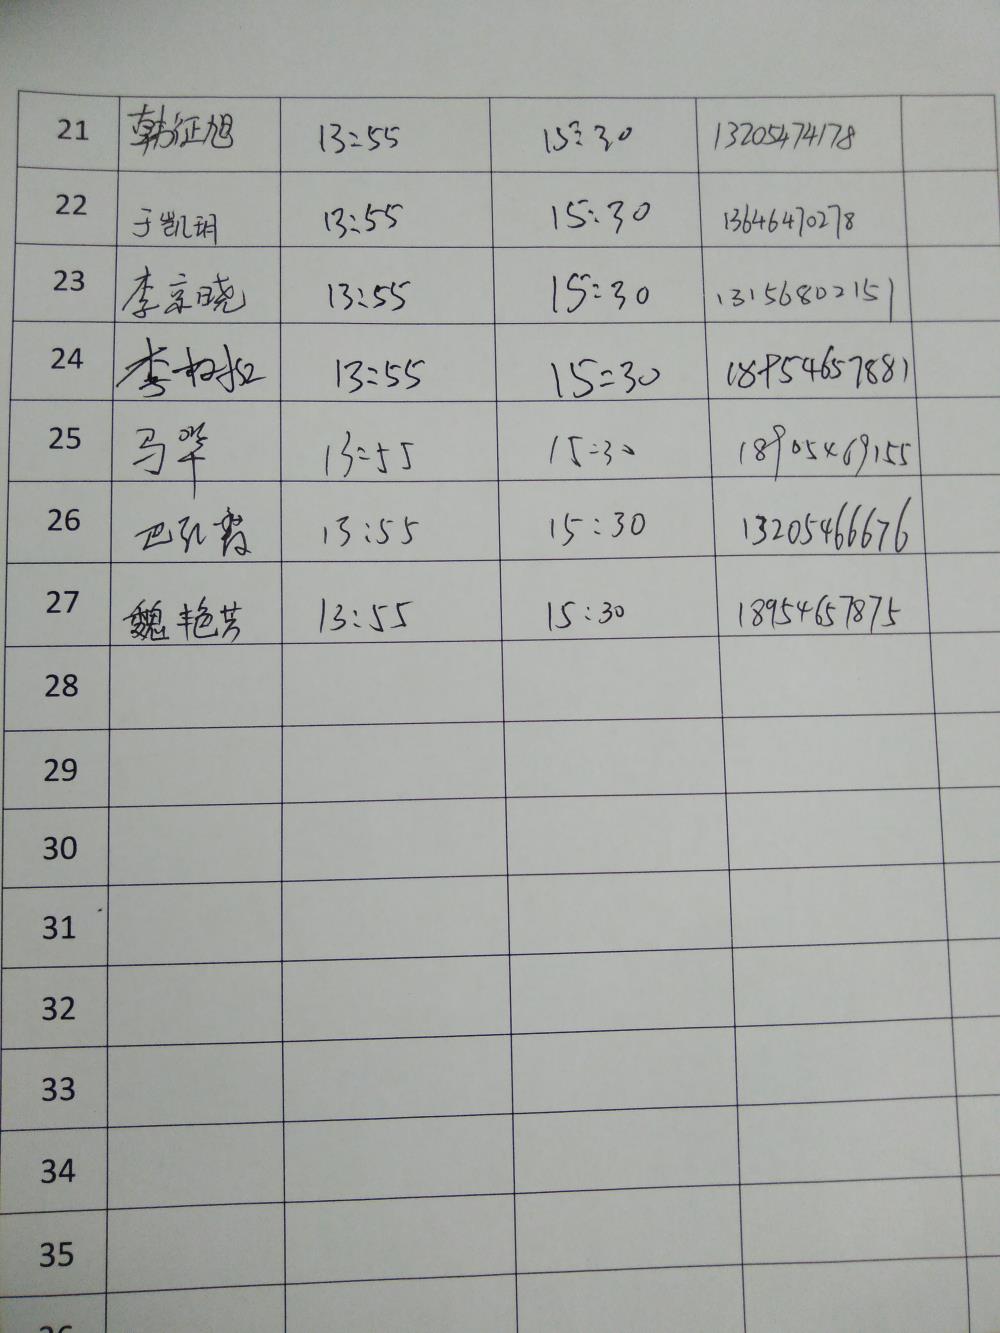 21 韩征旭 13:55 15:30 13205474178
22 于凯玥 13:55 15:30 13646470278
23 李京晓 13:55 15:30 13156802151
24 李 13:55 15:30 18954657881
25 马华 13:55 15:30 18905469155
26 巴孔霞 13:55 15:30 13205466676
27 魏艳芳 13:55 15:30 18954657875
28
29
30
31
32
33
34
35
36